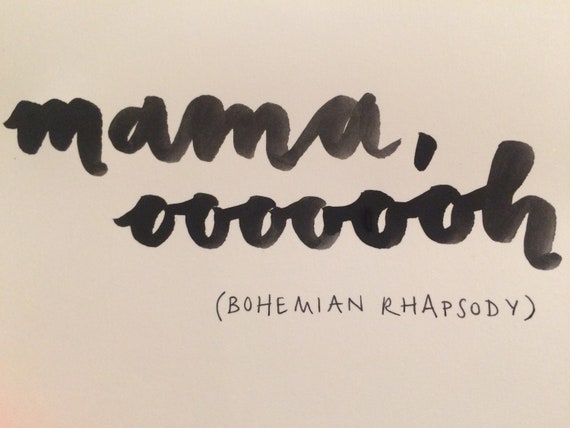 mama,
ooooooh
(BOHEMIAN RHAPSODY)